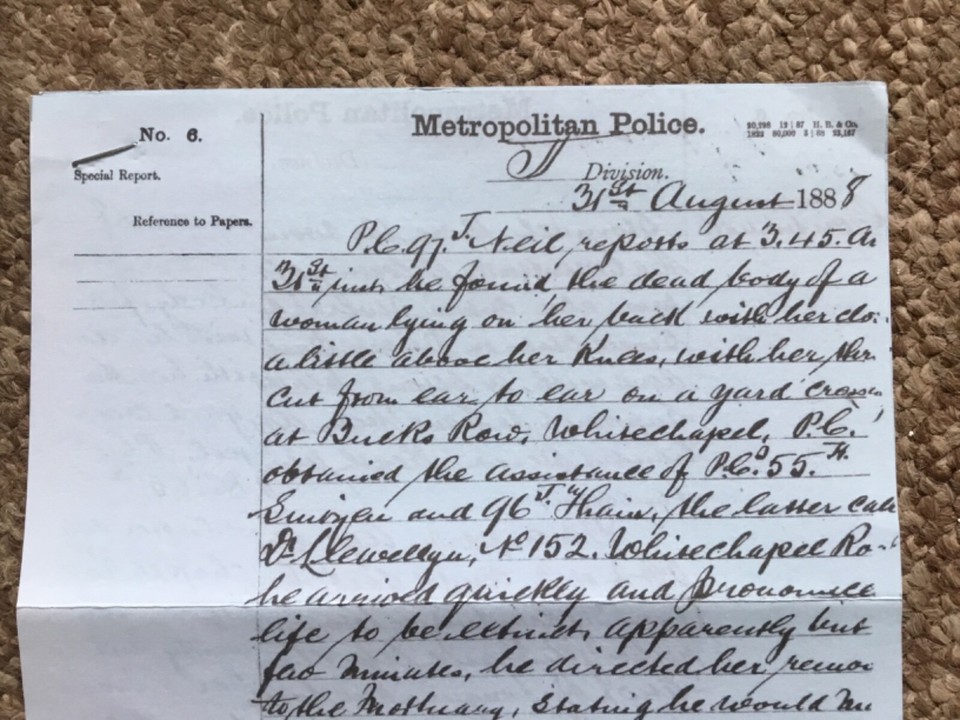 Metropolitan Police.
No. 6.
Special Report.
Reference to Papers.
J Division.
31st August 1888
P.C. 97.J Neil, reports at 3.45. a
31st inst he found the dead body of a
woman lying on her back with her clo
a little above her knees, with her thr
cut from ear to ear on a yard cross
at Bucks Row, Whitechapel, P.C.
obtained the assistance of P.C.s 55.H.
Smizen and 96 J. Thain, the latter cal
Dr. Llewellyn, No 152. Whitechapel Ro
he arrived quickly and pronounce
life to be extinct, apparently but
few minutes, he directed her remov
to the Mortuary, stating he would m